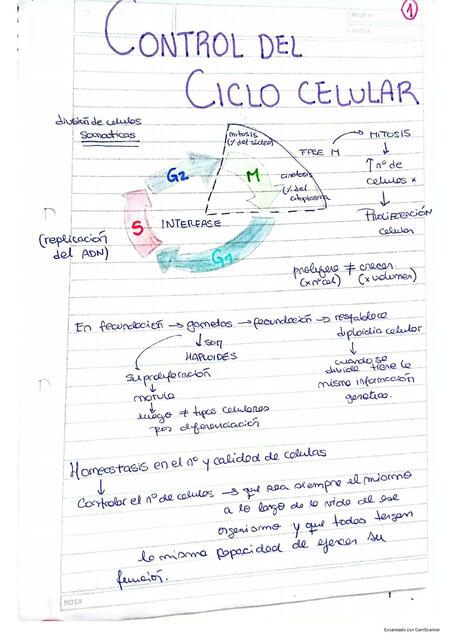 1
CONTROL DEL
CICLO CELULAR
división de celulas
somaticas
mitosis
(½ del núcleo)
FASE M
MITOSIS
↑ nº de
celulas x
Proliferación
celular
G2
M
S
G1
INTERFASE
citoplasma
(replicación
del ADN)
prolifera ≠ crecer
(x nº cel) (x volumen)
En fecundación → gametos → fecundación → restablece
diploidia celular
↳ son
HAPLOIDES
cuando se
divide tiene la
misma información
genetica.
su proliferación
↓
morula
↓
luego ≠ tipos celulares
por diferenciación
Homeostasis en el nº y calidad de celulas
↓
Controlar el nº de celulas → que sea siempre el mismo
a lo largo de la vida de ese
organismo y que todas tengan
la misma capacidad de ejercer su
función.
NOTA
Escaneado con CamScanner